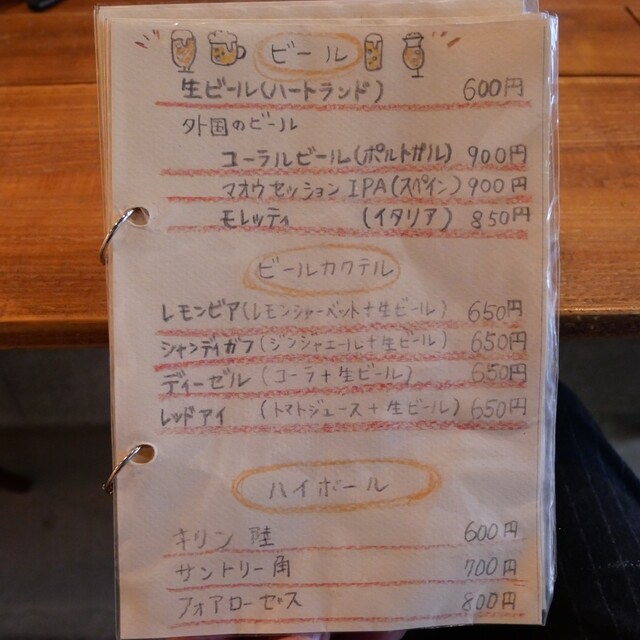 ビール
生ビール(ハートランド) 600円
外国のビール
コーラルビール(ポルトガル) 900円
マオウセッションIPA(スペイン) 900円
モレッティ (イタリア) 850円
ビールカクテル
レモンビア(レモンシャーベット+生ビール) 650円
シャンディガフ(ジンジャエール+生ビール) 650円
ディーゼル (コーラ+生ビール) 650円
レッドアイ (トマトジュース+生ビール) 650円
ハイボール
キリン 陸 600円
サントリー角 700円
フォアローゼス 800円